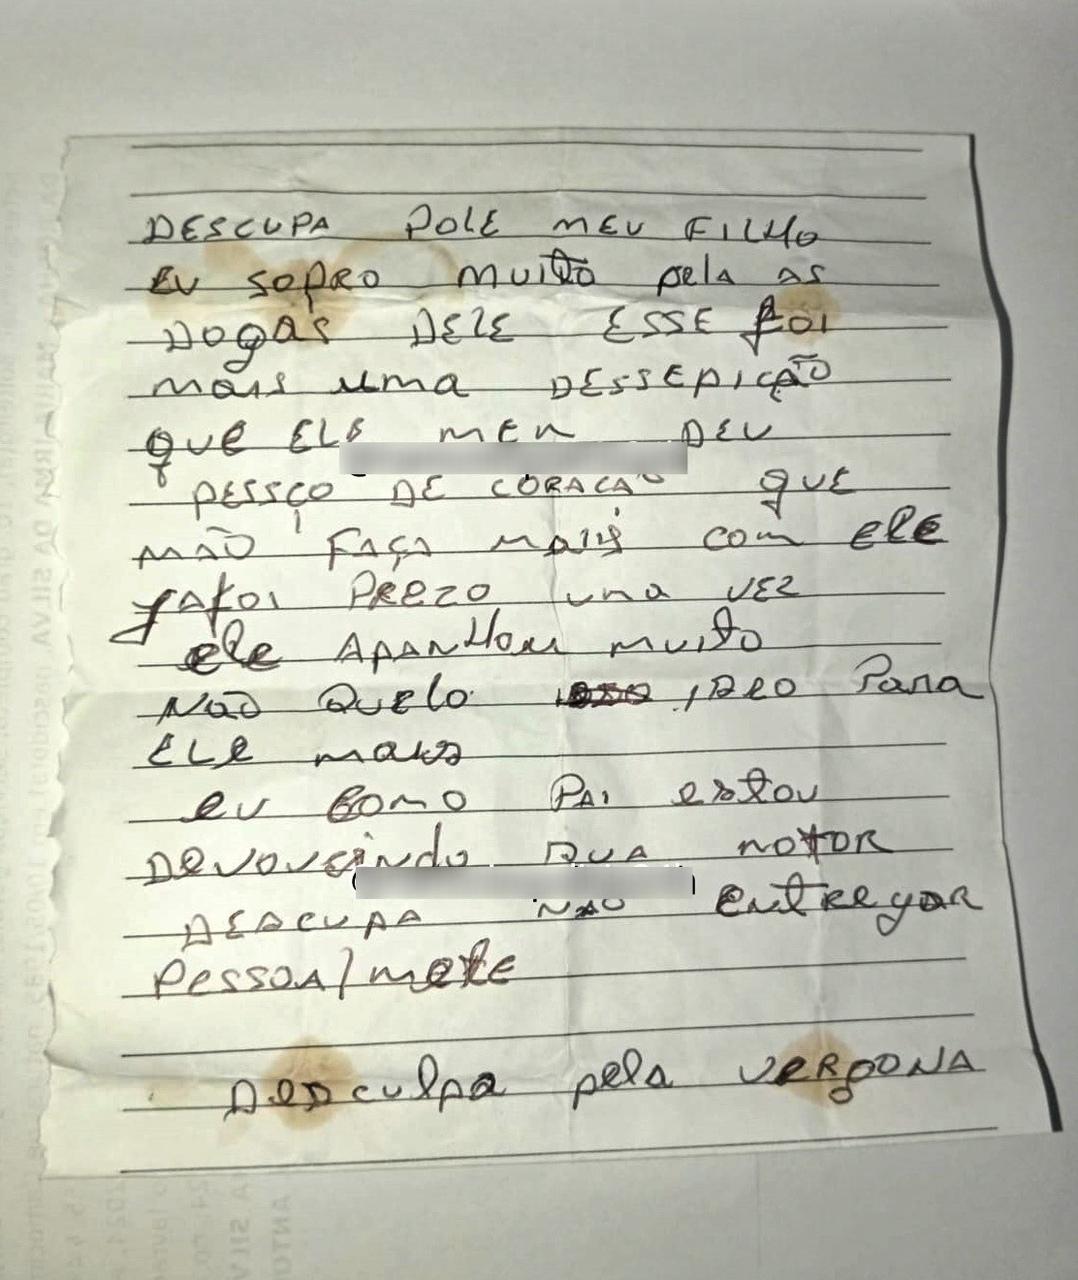 DESCUPA POLE MEU FILHO
EU SOFRO MUITO pela as
DOGAS DELE ESSE FOI
mais uma DESSEPIÇÃO
que ELE MEU DEU
PESSÇO DE CORAÇAO QUE
MÃO FAÇA MAIS COM ELE
JAFOI PREZO UMA VEZ
ele APANHOU MUITO
NÃO QUELO ISSO PARA
ELE mais
EU COMO PAI estou
DEVOUSINDO SUA MOTOR
DESCUPA NAO ENTREGAR
PESSOALMETE
DESCULPA pela VERGONA